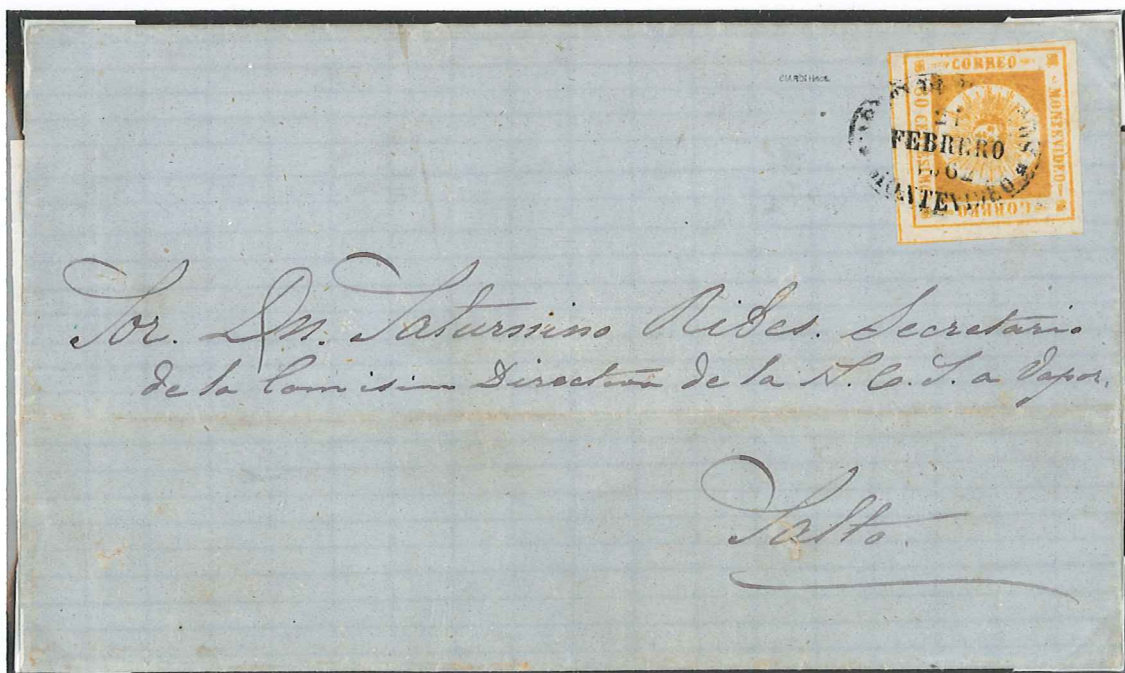 CORREO
MONTEVIDEO
CORREO
FEBRERO
MONTEVIDEO
Sor. Dn. Saturnino Ribes. Secretario
de la Comision Directiva de la N. C. S. a Vapor.
Salto.